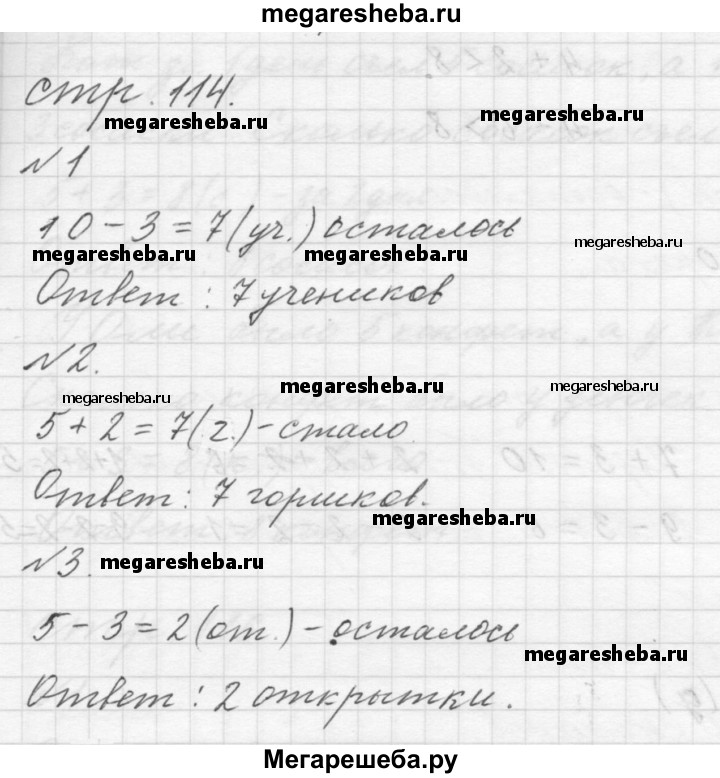 megaresheba.ru
стр. 114.
megaresheba.ru
megaresheba.ru
№1
10 - 3 = 7 (уч.) осталось
megaresheba.ru
megaresheba.ru
megaresheba.ru
Ответ : 7 учеников
№2.
megaresheba.ru
megaresheba.ru
megaresheba.ru
5 + 2 = 7 (г.) - стало
Ответ : 7 горшков.
megaresheba.ru
№3.
megaresheba.ru
5 - 3 = 2 (от.) - осталось
megaresheba.ru
Ответ : 2 открытки.
Мегарешеба.ру